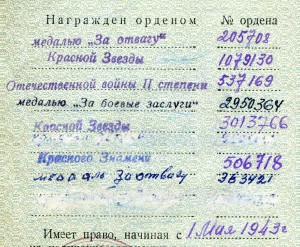 Награжден орденом № ордена
медалью „За отвагу" 205708
Красной Звезды 1079130
Отечественной войны II степени 537169
медалью „За боевые заслуги" 2950364
Красной Звезды 3013766
Красного Знамени 506718
медаль За отвагу 353421
Имеет право, начиная с 1 Мая 1943 г